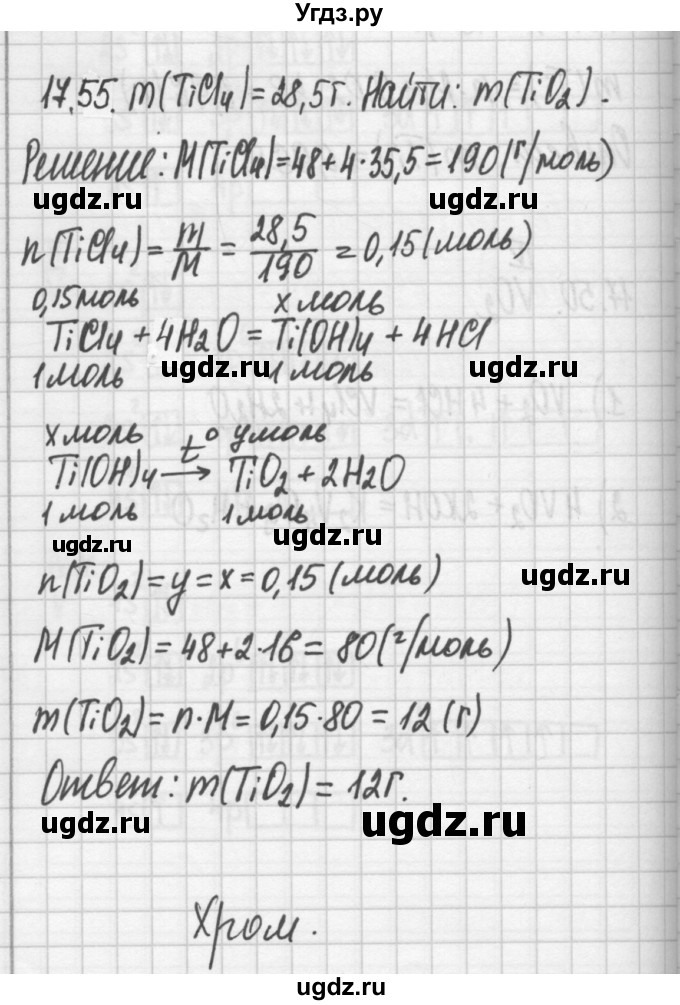 Угдз.ру
17.55. m(TiCl4)=28,5г. Найти: m(TiO2).
Решение: M(TiCl4)=48+4·35,5=190(г/моль)
ugdz.ru ugdz.ru
n(TiCl4)=m/M=28,5/190=0,15(моль)
0,15моль x моль
TiCl4+4H2O=Ti(OH)4+4HCl
ugdz.ru ugdz.ru
1моль 1моль
x моль y моль
Ti(OH)4 t° → TiO2+2H2O
1моль 1моль
ugdz.ru ugdz.ru
n(TiO2)=y=x=0,15(моль)
ugdz.ru
M(TiO2)=48+2·16=80(г/моль)
m(TiO2)=n·M=0,15·80=12(г)
Ответ: m(TiO2)=12г.
ugdz.ru ugdz.ru
Хром.
ugdz.ru